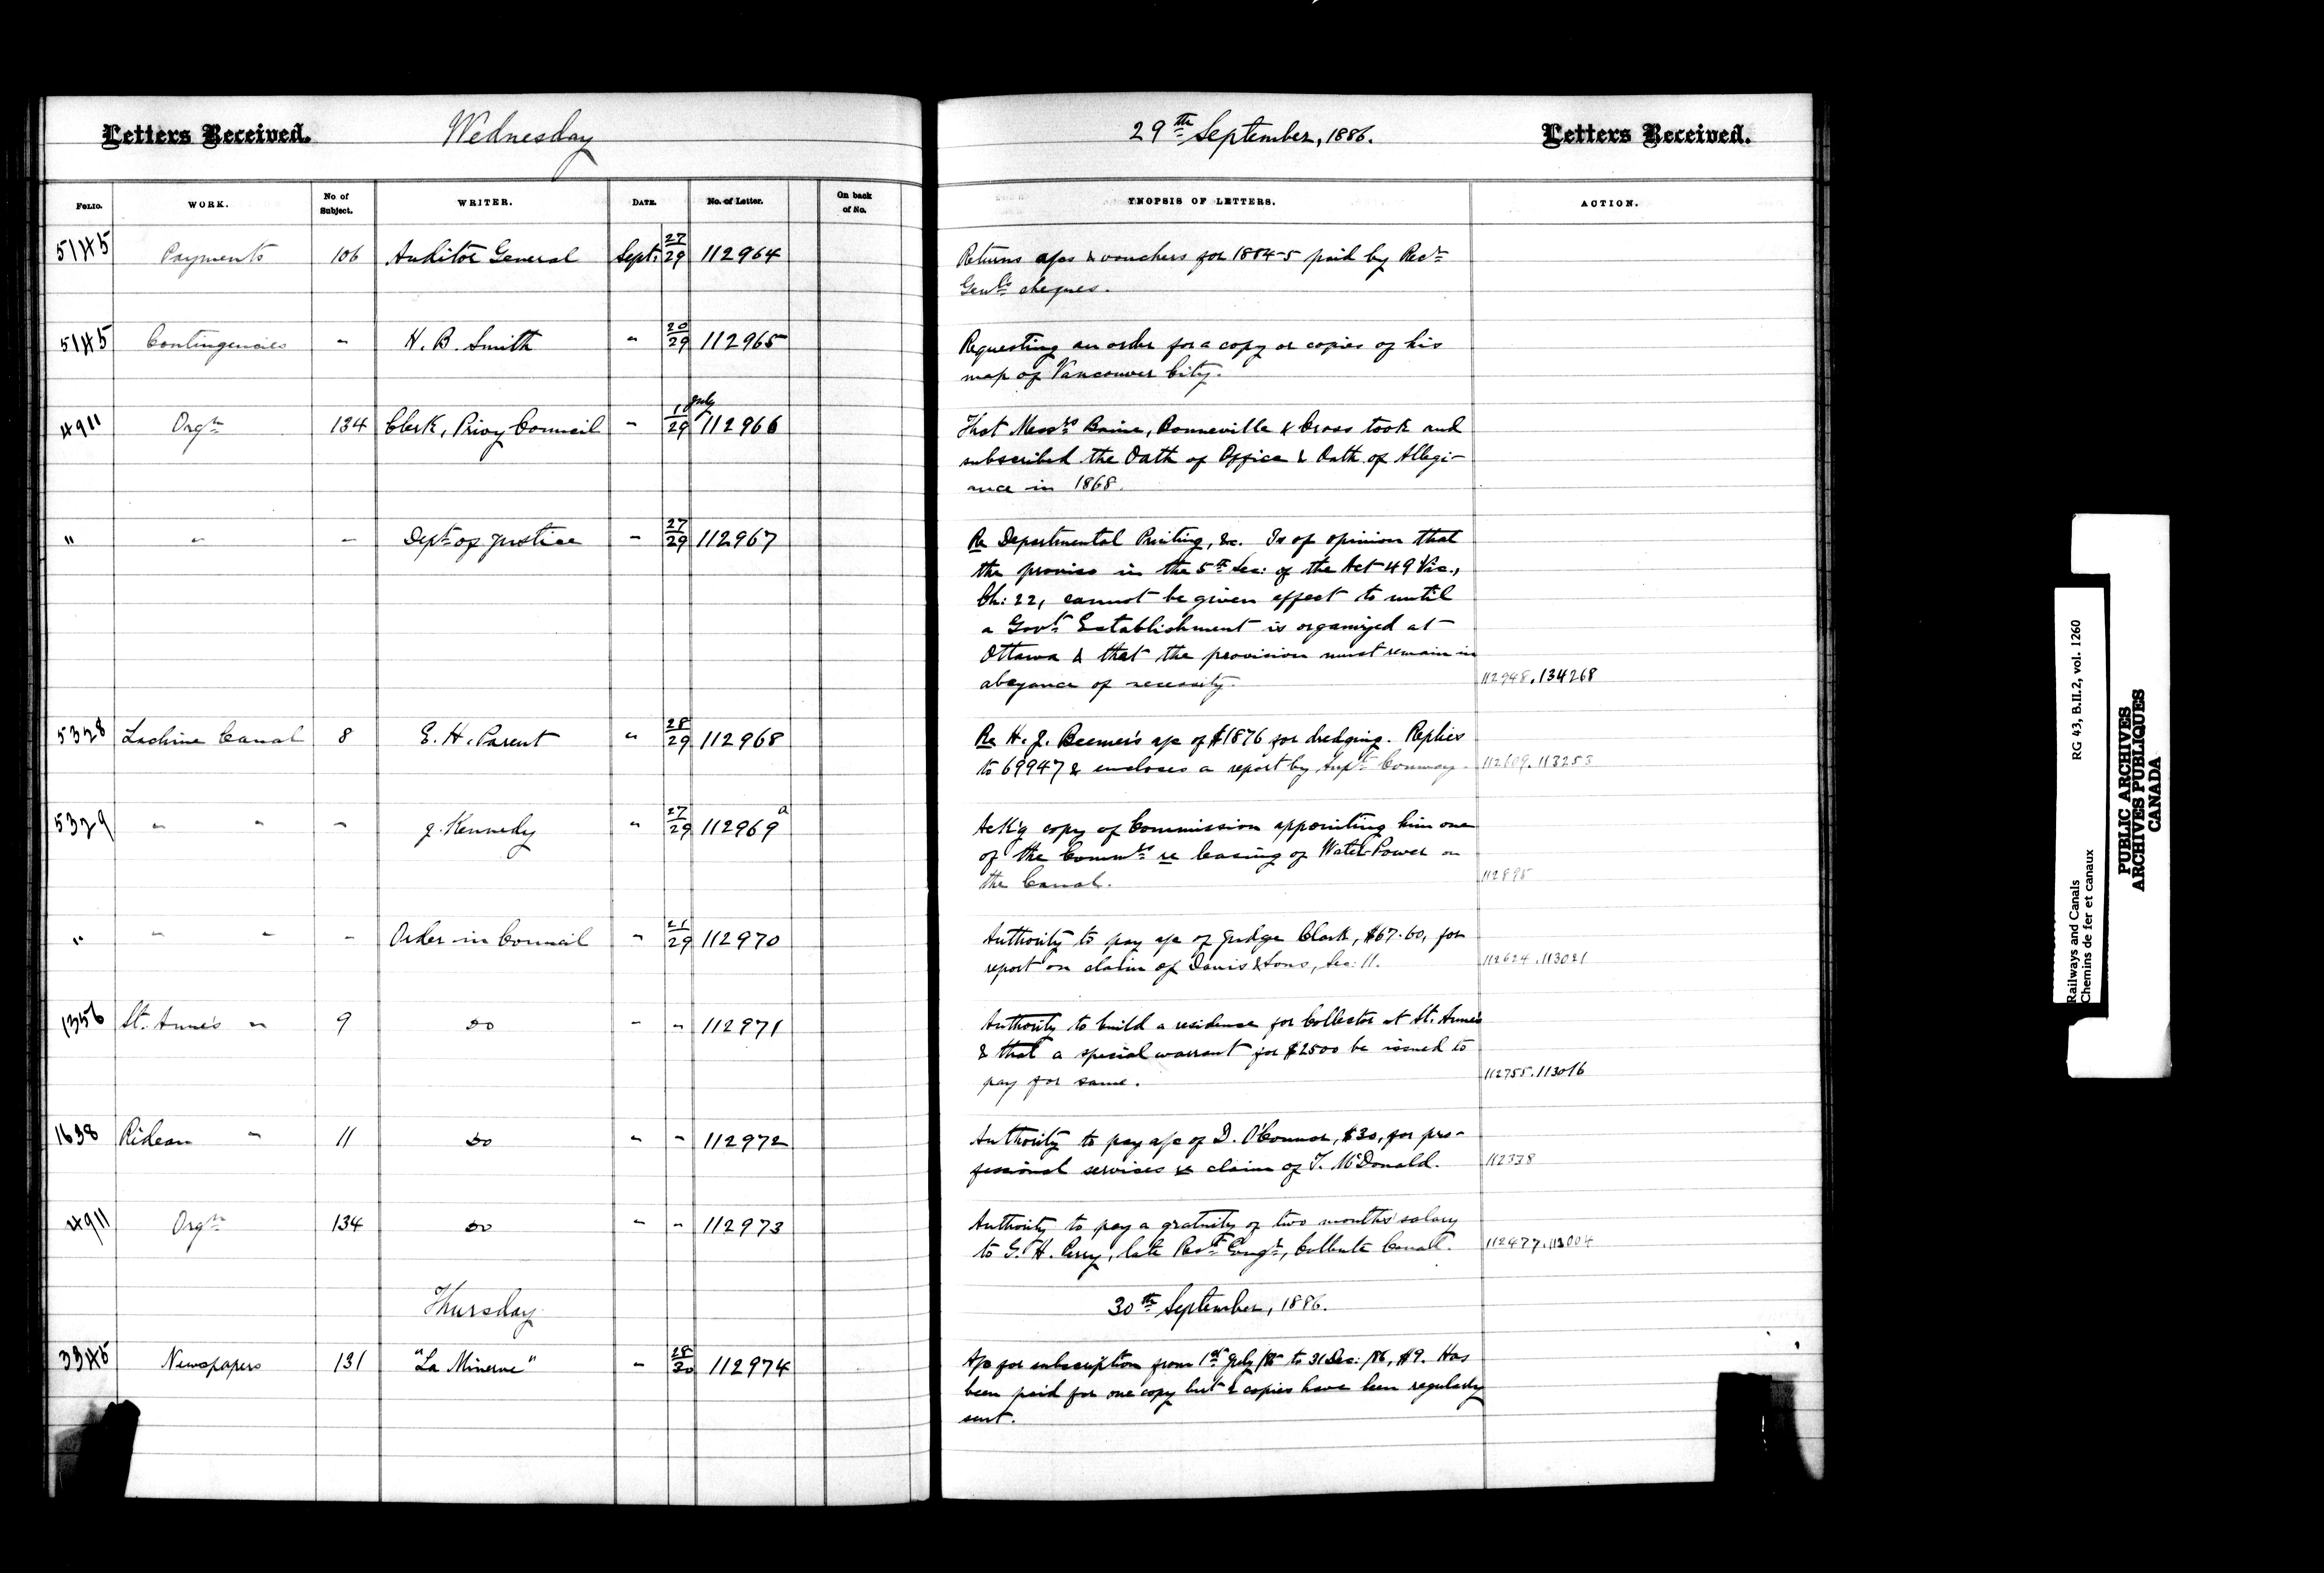 Letters Received. Wednesday 29th September, 1886. Letters Received.
FOLIO. WORK. No of Subject. WRITER. DATE. No. of Letter. On back of No. SYNOPSIS OF LETTERS. ACTION.
5145 Payments 106 Auditor General Sept. 27/29 112964 Returns a/cs & vouchers for 1884-5 paid by Recr
Genl's cheques.
5145 Contingencies " H. B. Smith " 20/29 112965 Requesting an order for a copy or copies of his
map of Vancouver City.
4911 Orgn 134 Clerk, Privy Council " 1 July/29 112966 That Messrs Baine, Bonneville & Cross took and
subscribed the Oath of Office & Oath of Allegi-
ance in 1868.
" " " Dept of Justice " 27/29 112967 Re Departmental Printing, &c. Is of opinion that
the proviso in the 5th Sec: of the Act 49 Vic.,
Ch: 22, cannot be given effect to until
a Govt Establishment is organized at
Ottawa & that the provision must remain in
abeyance of necessity. 112948.134268
5328 Lachine Canal 8 E. H. Parent " 28/29 112968 Re H. J. Beemer's a/c of $1876 for dredging. Replies
to 69947 & encloses a report by Supt Conway. 112609.113253
5329 " " " J. Kennedy " 27/29 112969a Ack'g copy of Commission appointing him one
of the Commrs re leasing of Water Power on
the Canal. 112895
" " " " Order in Council " 21/29 112970 Authority to pay a/c of Judge Clark, $67.60, for
report on claim of Davis & Sons, Sec: 11. 112624.113021
1356 St. Anne's " 9 Do " " 112971 Authority to build a residence for Collector at St. Anne's
& that a special warrant for $2500 be issued to
pay for same. 112755.113016
1638 Rideau " 11 Do " " 112972 Authority to pay a/c of D. O'Connor, $30, for pro-
fessional services re claim of T. McDonald. 112338
4911 Orgn 134 Do " " 112973 Authority to pay a gratuity of two months' salary
to G. H. Perry, late Resdt Engr, Culbute Canal. 112477.113004
Thursday 30th September, 1886.
3345 Newspapers 131 "La Minerve" " 28/30 112974 A/c for subscription from 1st July /85 to 31 Dec: /86, $9. Has
been paid for one copy but 2 copies have been regularly
sent.
RG 43, B.III.2, vol. 1260
Railways and Canals
Chemins de fer et canaux
PUBLIC ARCHIVES
ARCHIVES PUBLIQUES
CANADA